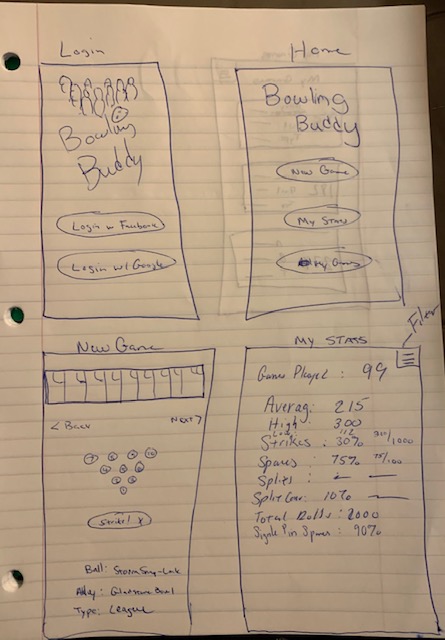 Login
Bowling
Buddy
Login w Facebook
Login w/ Google
Home
Bowling
Buddy
New Game
My Stats
My Games
New Game
< Back
NEXT >
7 8 9 10
Strike! X
Ball:
Alley: Bowl
Type: League
Filter
MY STATS
Games Played: 99
Average: 215
High: 300
Low: 112
Strikes: 30% 300/1000
Spares: 75% 75/100
Splits:
Split Conv: 10%
Total Rolls: 2000
Single Pin Spares: 90%